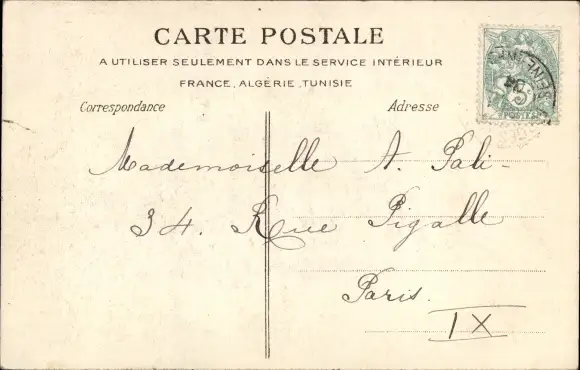 CARTE POSTALE
A UTILISER SEULEMENT DANS LE SERVICE INTÉRIEUR
FRANCE, ALGÉRIE, TUNISIE
Correspondance
Adresse
5
POSTES
SEINE
Mademoiselle A. Pali-
34. Rue Pigalle
Paris.
IX